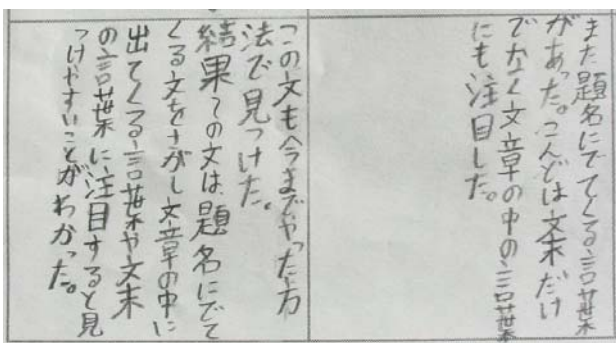 また題名にでてくる言葉
があった。こんどは文末だけ
でなく文章の中の言葉
にも注目した。
この文も今までやった方
法で見つけた。
結果この文は題名にでて
くる文をさがし文章の中に
出てくる言葉や文末
の言葉に注目すると見
つけやすいことがわかった。